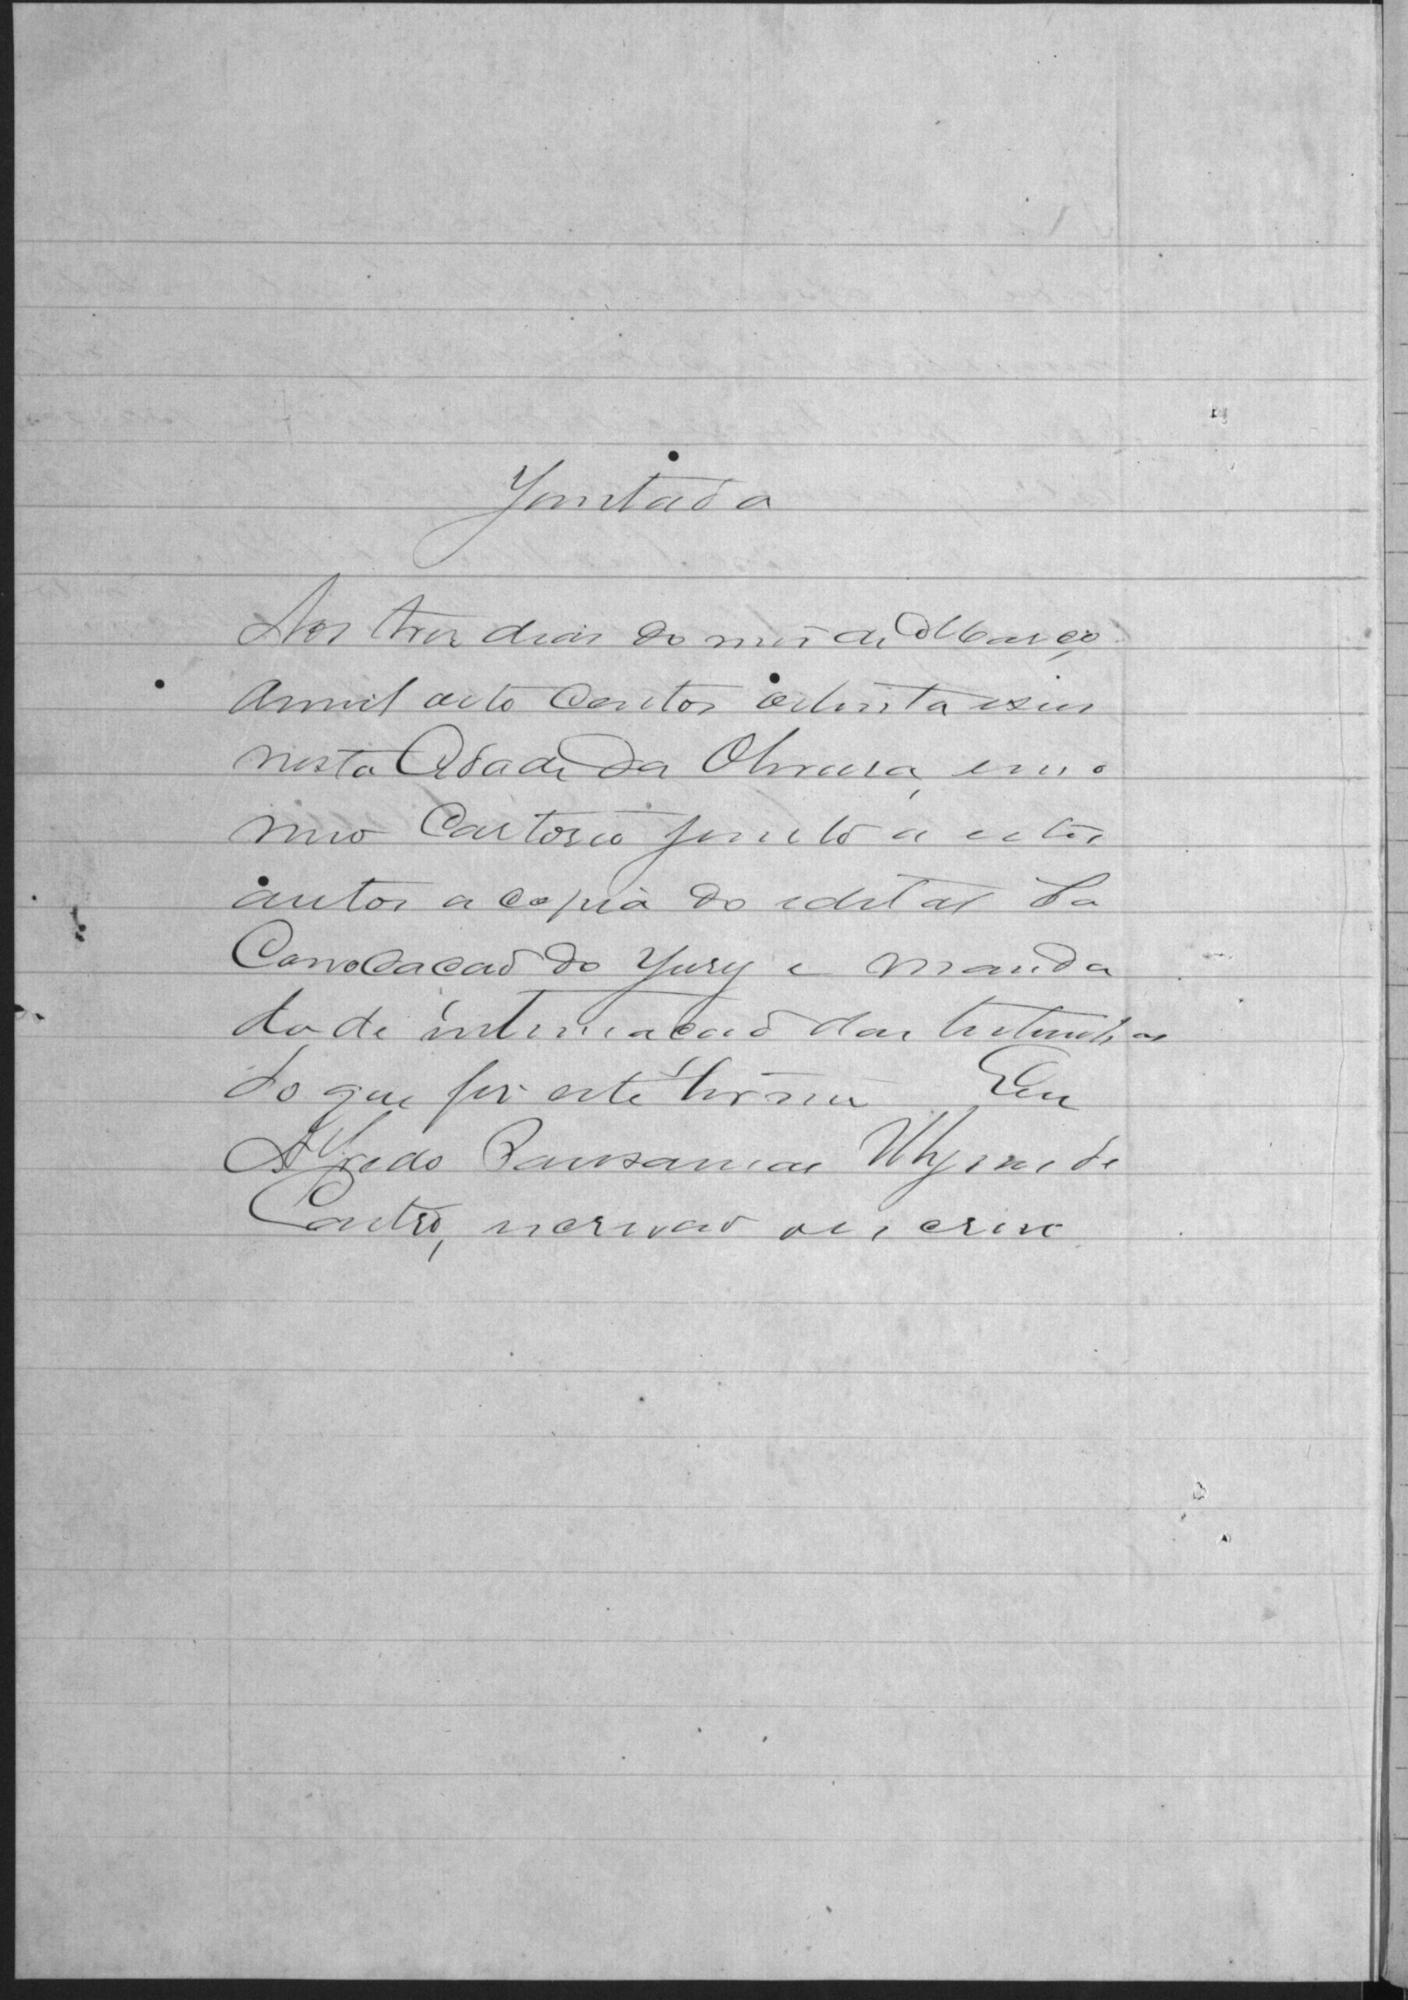 Juntada
Aos tres dias do mes de Março
de mil oito centos oitenta e seis
nesta Cidade da Oliveira, em o
meo Cartorio junto a estes
autos a copia do edital da
Convocacaõ do Jury e manda
do de intimacaõ das testemunhas
do que fiz este termo Eu
Alfredo Pausanias de
Castro, escrivaõ o escrevi